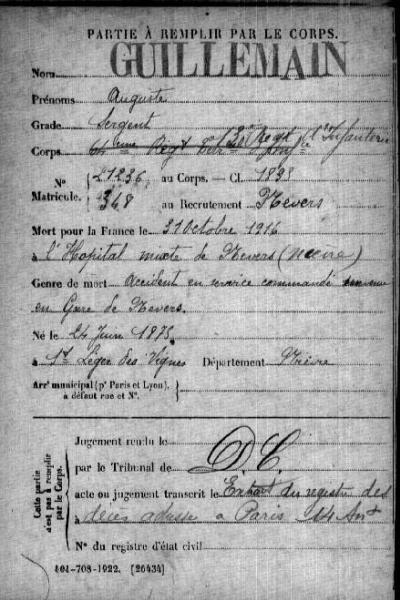 PARTIE À REMPLIR PAR LE CORPS.
GUILLEMAIN
Nom
Prénoms Auguste
Grade Sergent
Corps 64ème Regt Ter 13e Regt d'Infanterie
N° Matricule. 21236 au Corps. — Cl. 1898
368 au Recrutement Nevers
Mort pour la France le 31 Octobre 1916
à l'Hopital mixte de Nevers (Nièvre)
Genre de mort Accident en service commandé survenu
en Gare de Nevers.
Né le 24 Juin 1878
à St Léger des Vignes Département Nièvre
Arrt municipal (pr Paris et Lyon), à défaut rue et N°.
Cette partie n'est pas à remplir par le Corps.
Jugement rendu le
par le Tribunal de D.C.
acte ou jugement transcrit le Extrait du registre des
décès adressé à Paris 14 Art
N° du registre d'état civil
101-708-1922. [26434]